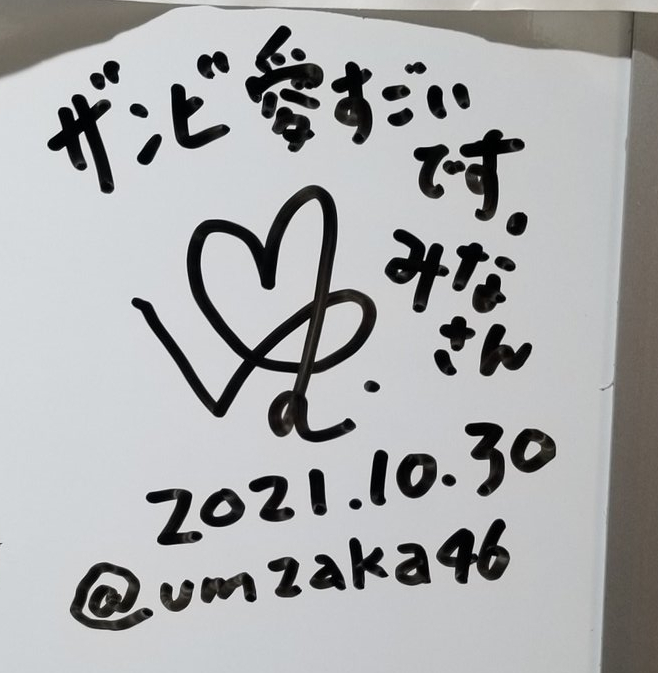 ザンビ愛すごい
です.
みな
さん
2021.10.30
@umzaka46